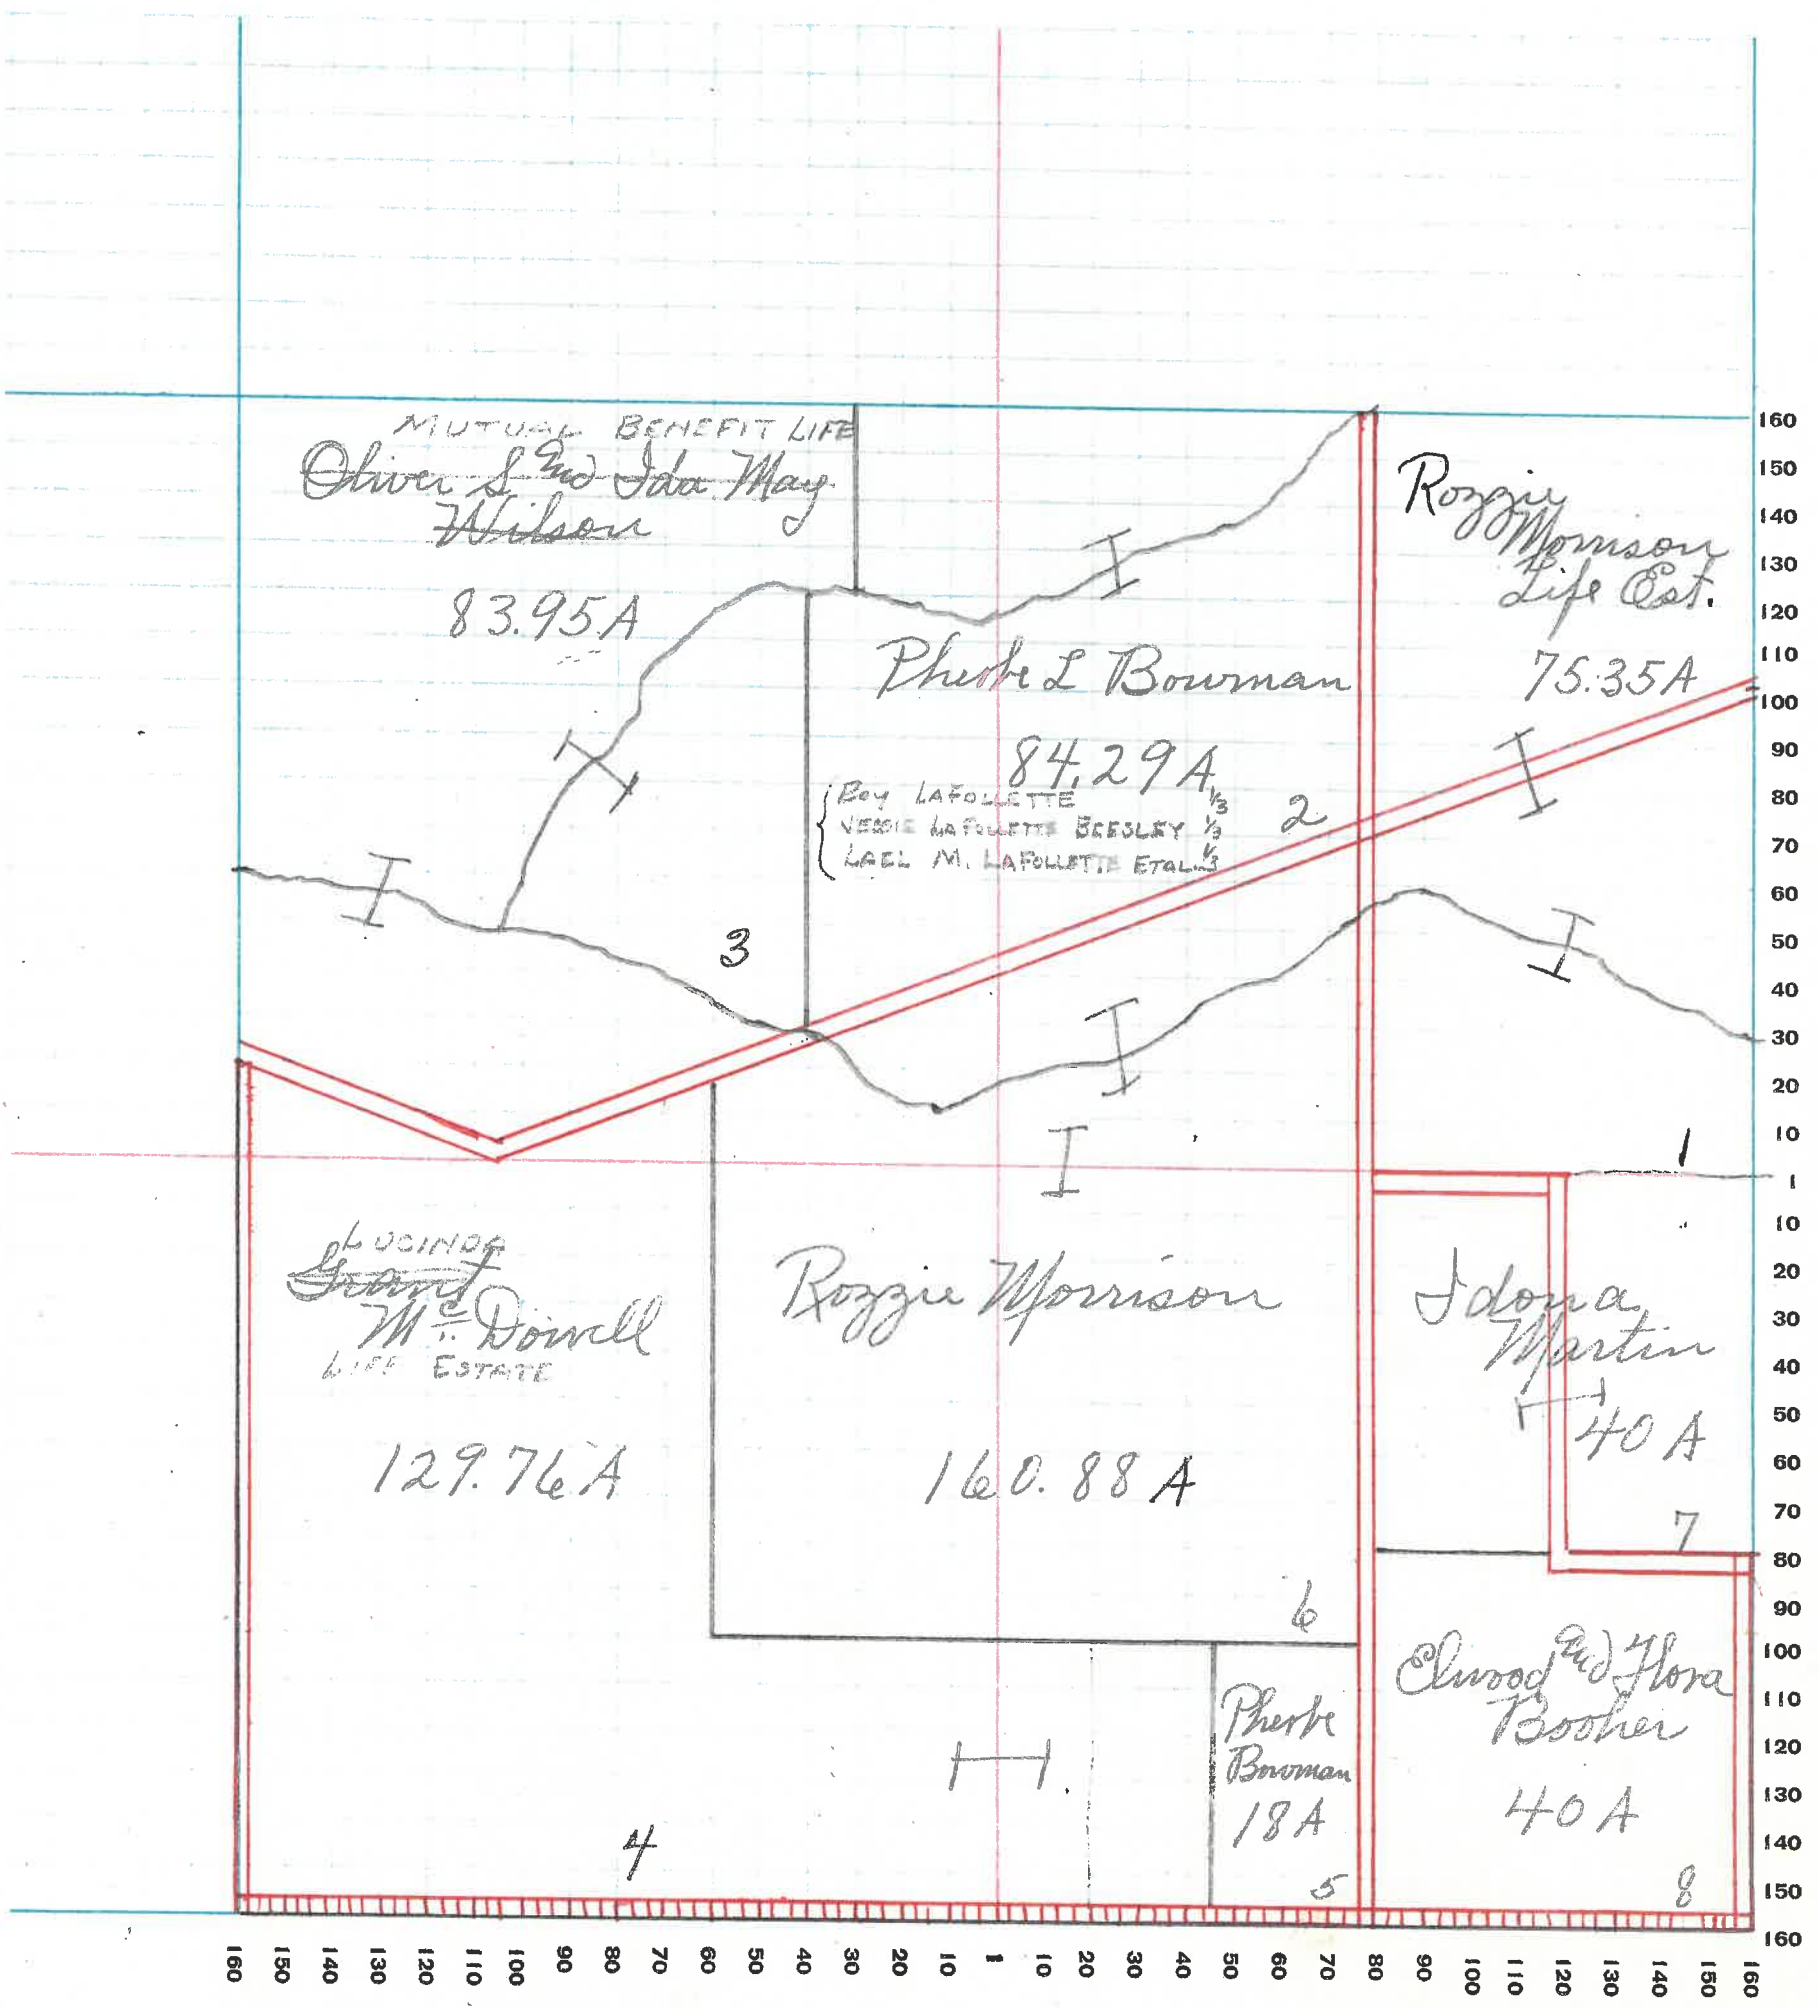 MUTUAL BENEFIT LIFE
Oliver S and Ida May
Wilson
83.95 A
Rozzie
Morrison
Life Est.
75.35 A
Pheobe L Bowman
84.29 A
LAFOLLETTE 1/3
JESSIE LAFOLLETTE BEESLEY 1/3
LAEL M. LAFOLLETTE ETAL 1/3
2
3
1
LUCINDA
Grant
Mc Dowell
LIFE ESTATE
129.76 A
4
Rozzie Morrison
160.88 A
6
Idona
Martin
40 A
7
Pheobe
Bowman
18 A
5
Elwood and Flora
Booher
40 A
8
160
150
140
130
120
110
100
90
80
70
60
50
40
30
20
10
1
10
20
30
40
50
60
70
80
90
100
110
120
130
140
150
160
160 150 140 130 120 110 100 90 80 70 60 50 40 30 20 10 1 10 20 30 40 50 60 70 80 90 100 110 120 130 140 150 160